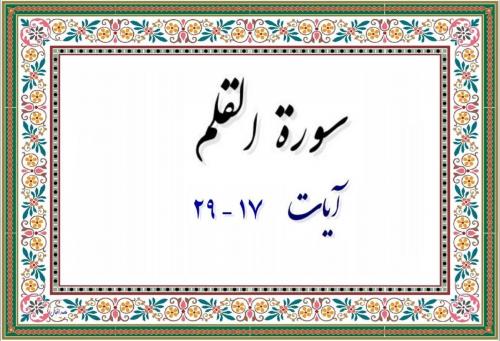 سورة القلم
آيات ١٧ - ٢٩